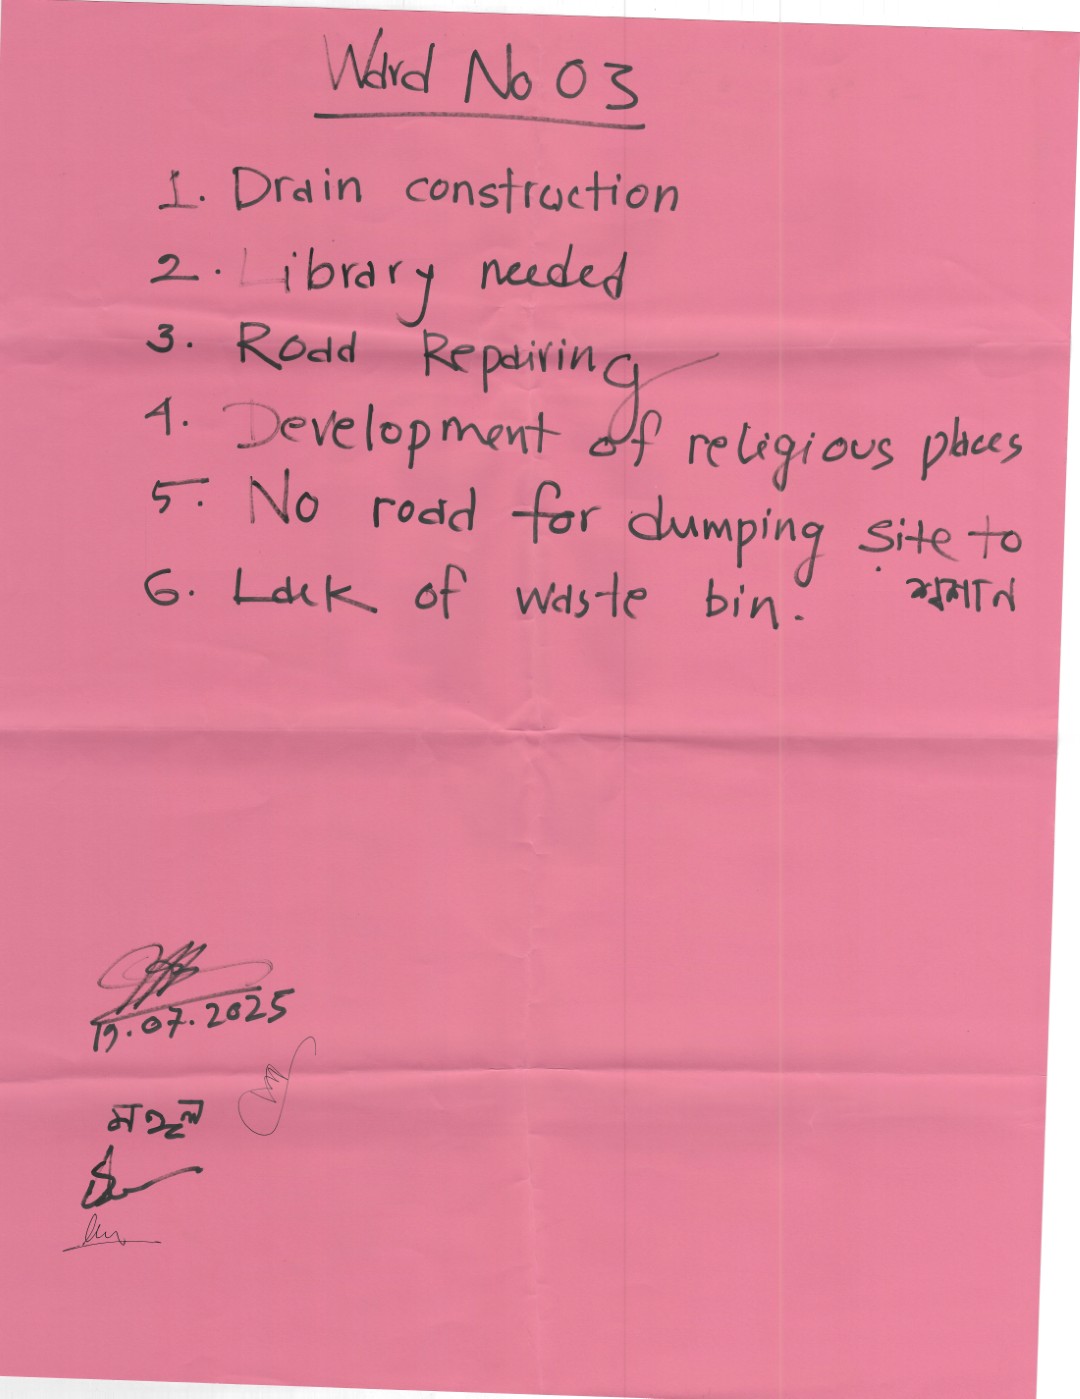 Ward No 03
1. Drain construction
2. Library needed
3. Road Repairing
4. Development of religious places
5. No road for dumping site to
শ্মশান
6. Lack of waste bin.
19.07.2025